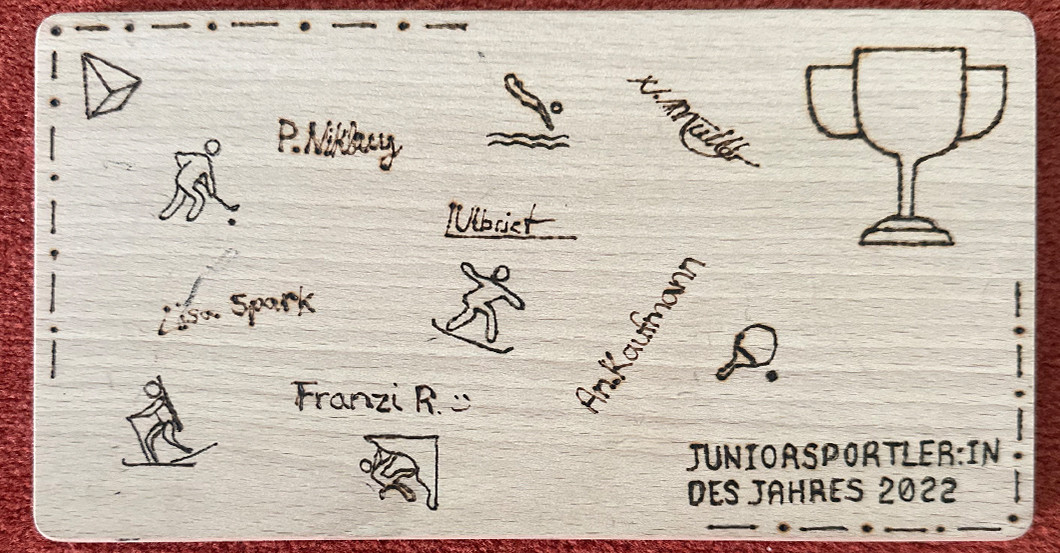 P. Niklauy
Ulbrict
Lisa Spark
An. Kaufmann
Franzi R. :)
JUNIORSPORTLER:IN
DES JAHRES 2022